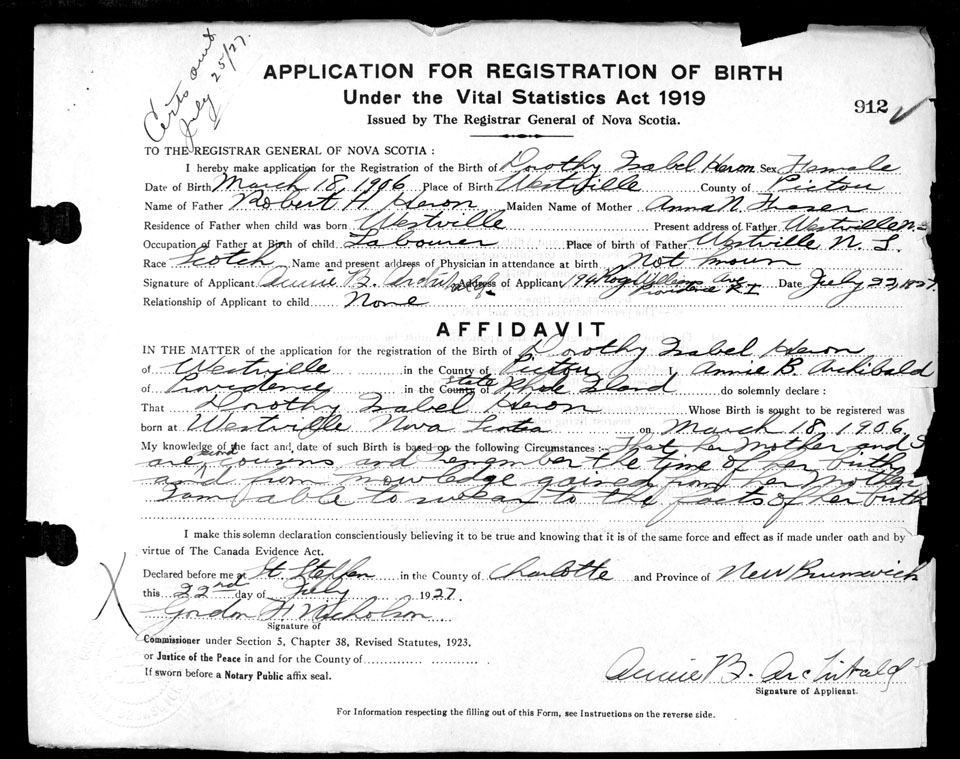 Certs out
July 25/27.
APPLICATION FOR REGISTRATION OF BIRTH
Under the Vital Statistics Act 1919
Issued by The Registrar General of Nova Scotia.
912
TO THE REGISTRAR GENERAL OF NOVA SCOTIA :
I hereby make application for the Registration of the Birth of Dorothy Isabel Heron Sex Female
Date of Birth March 18, 1906 Place of Birth Westville County of Pictou
Name of Father Robert H. Heron Maiden Name of Mother Anna N. Fraser
Residence of Father when child was born Westville Present address of Father Westville N.S.
Occupation of Father at Birth of child Labourer Place of birth of Father Westville N. S.
Race Scotch Name and present address of Physician in attendance at birth Not known
Signature of Applicant Annie B. Archibald Address of Applicant 194 Rog. Williams Ave Providence R I Date July 22, 1927.
Relationship of Applicant to child None
AFFIDAVIT
IN THE MATTER of the application for the registration of the Birth of Dorothy Isabel Heron
of Westville in the County of Pictou I Annie B. Archibald
of Providence in the County of State Rhode Island do solemnly declare :
That Dorothy Isabel Heron Whose Birth is sought to be registered was
born at Westville Nova Scotia on March 18, 1906
My knowledge of the fact and date of such Birth is based on the following Circumstances :- That her Mother and I
are cousins and remember the time of her birth
and from knowledge gained from her Mother
I am able to swear to the facts of her birth
I make this solemn declaration conscientiously believing it to be true and knowing that it is of the same force and effect as if made under oath and by
virtue of The Canada Evidence Act.
Declared before me at St. Steffen in the County of Charlotte and Province of New Brunswick
this 22nd day of July 1927.
X Gordon H. Nicholson
Signature of
Commissioner under Section 5, Chapter 38, Revised Statutes, 1923,
or Justice of the Peace in and for the County of
If sworn before a Notary Public affix seal.
Annie B. Archibald
Signature of Applicant.
For Information respecting the filling out of this Form, see Instructions on the reverse side.